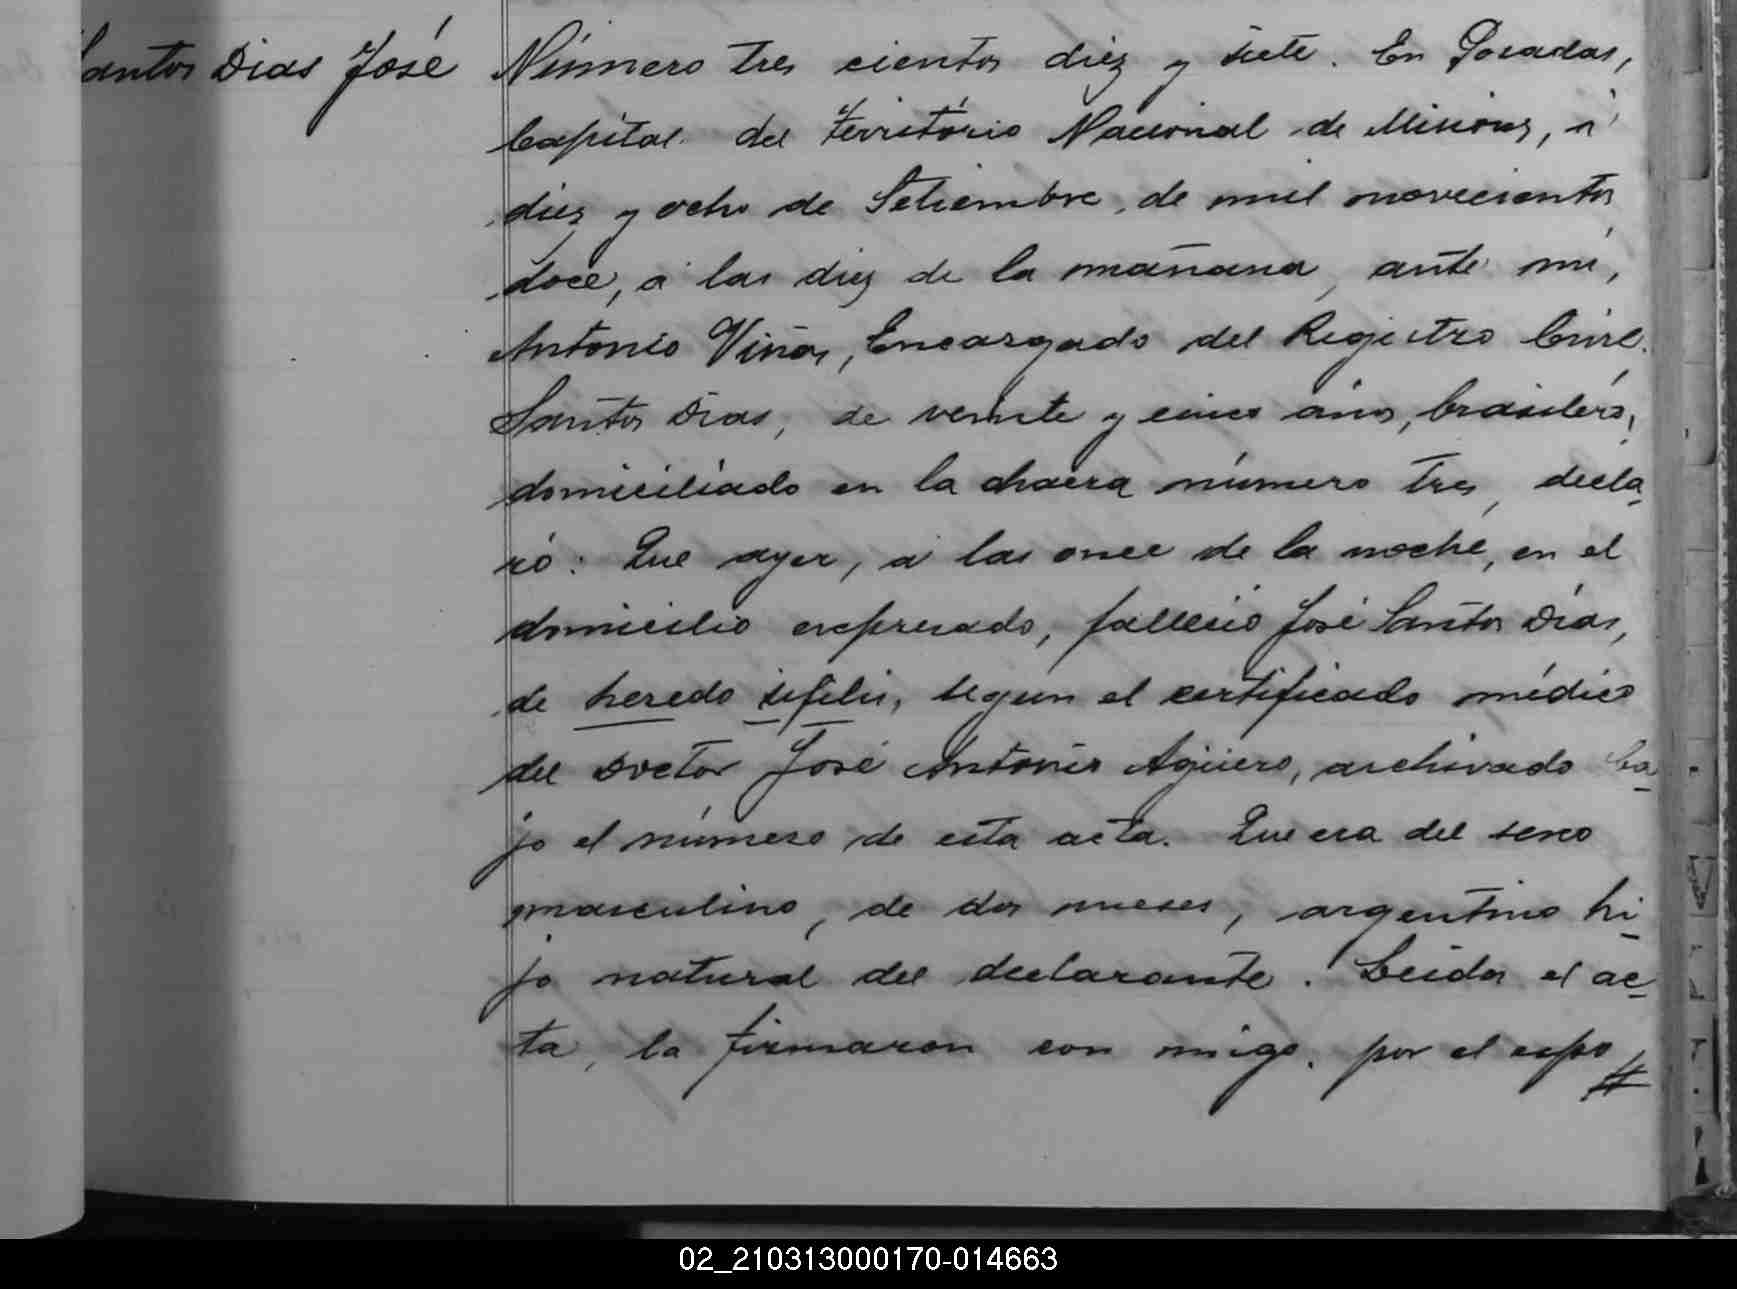 Santos Dias José
Número tres cientos diez y siete. En Posadas,
Capital del Território Nacional de Misiones, á
diez y ocho de Setiembre, de mil novecientos
doce, á las diez de la mañana, ante mi,
Antonio Viñas, Encargado del Registro Civil.
Santos Dias, de veinte y cinco años, brasilero,
domiciliado en la chacra número tres, decla-
ró: Que ayer, á las once de la noche, en el
domicilio expresado, falleció José Santos Dias,
de heredo sifilis, segun el certificado médico
del Doctor José Antonio Agüero, archivado ba-
jo el número de esta acta. Que era del sexo
masculino, de dos meses, argentino hi-
jo natural del declarante. Leida el ac-
ta, la firmaron con migo, por el expo
02_210313000170-014663